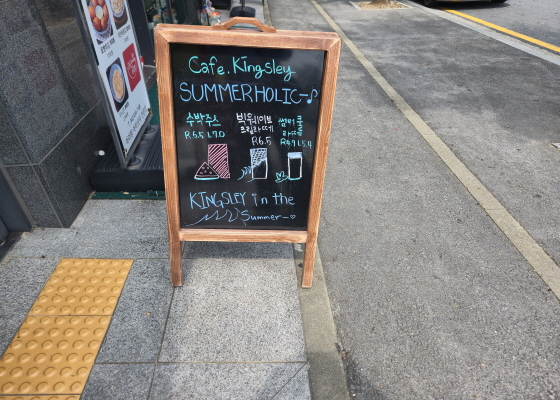 Cafe. Kingsley
SUMMERHOLIC~♪
수박주스
R 5.5 L 7.0
빅웨이브
크림라떼
R 6.5
썸머쿨
R 4.9 L 5.4
KINGSLEY in the
Summer~♡